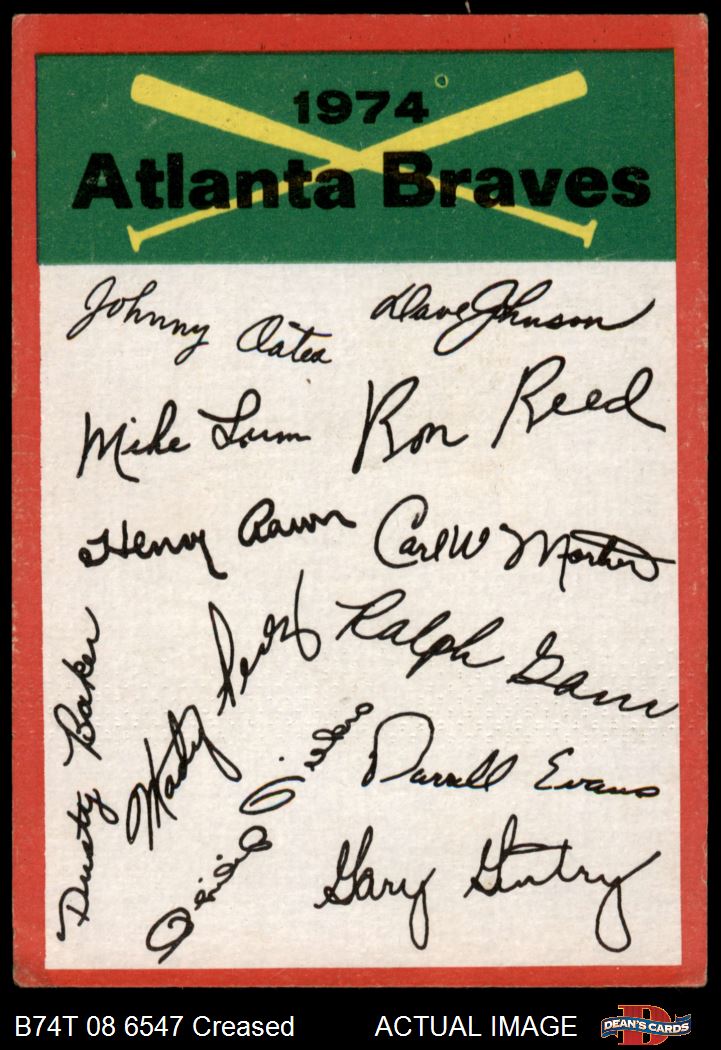 1974
Atlanta Braves
Johnny Oates
Dave Johnson
Mike Lum
Ron Reed
Henry Aaron
Carl W Morton
Marty Perez
Ralph Garr
Dusty Baker
Darrell Evans
Gary Gentry
B74T 08 6547 Creased
ACTUAL IMAGE
D
DEAN'S CARDS